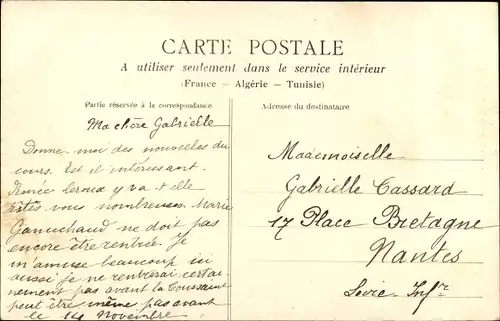 CARTE POSTALE
A utiliser seulement dans le service intérieur
(France — Algérie — Tunisie)
Partie réservée à la correspondance
Adresse du destinataire
Ma chère Gabrielle
Donne moi des nouvelles du
cours. Est il intéressant.
Renée Leroux y va t elle
Etes vous nombreuses. Marie
ne doit pas
encore être rentrée. Je
m'amuse beaucoup ici
aussi je ne rentrerai certai-
nement pas avant la Toussaint
peut être même pas avant
le 14 Novembre
Mademoiselle
Gabrielle Cassard
17 Place Bretagne
Nantes
Loire Inf<sup>re</sup>